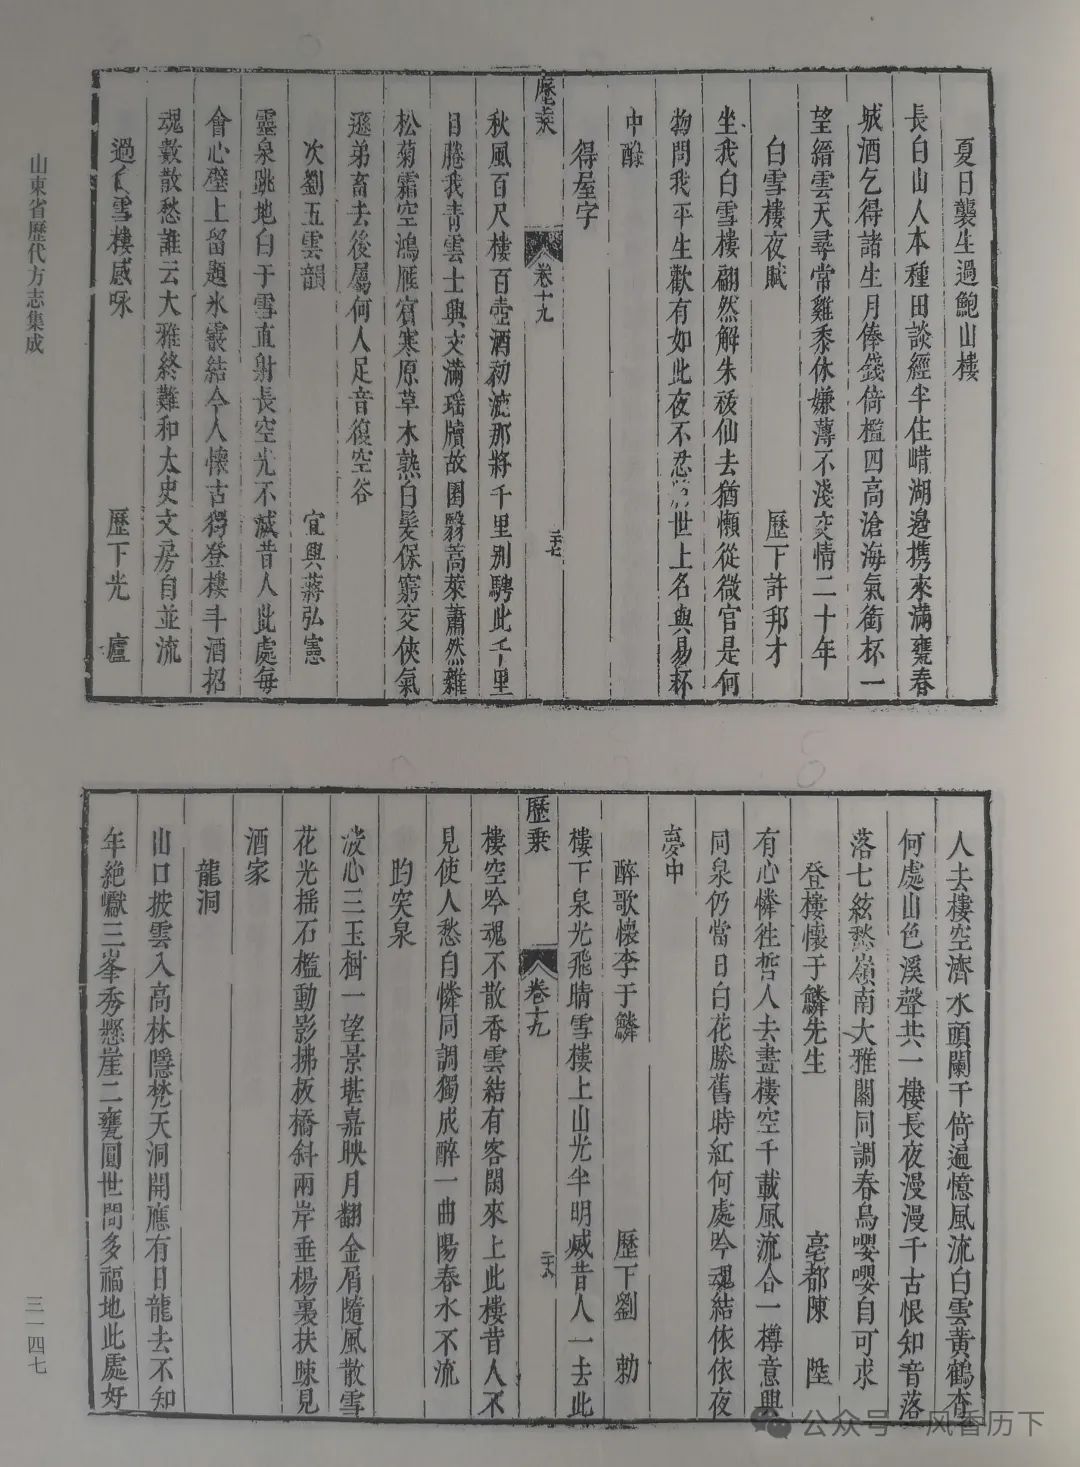 夏日襲生過鮑山樓
長白山人本種田談經半住嵴湖邊携來滿甕春
城酒乞得諸生月俸錢倚檻四高滄海氣銜杯一
望縉雲天尋常雞黍休嫌薄不淺交情二十年
白雪樓夜賦　歷下許邦才
坐我白雪樓翩然解朱祓仙去猶懶從微官是何
物問我平生歡有如此夜不忍　世上名與易杯
中醁
得屋字
歷乘　卷十九　三十七
秋風百尺樓百壺酒初漉那將千里別騁此千里
目勝我青雲士興文滿瑶牘故園翳蒿萊蕭然雜
松菊霜空鴻雁賓寒原草木熟白髮保窮交俠氣
遜弟畜去後屬何人足音復空谷
次劉五雲韻　宜興蔣弘憲
靈泉跳地白于雪直射長空光不滅昔人此處每
會心壁上留題氷霰結今人懷古獨登樓斗酒招
魂數散愁誰云大雅終難和太史文房自並流
過白雪樓感咏　歷下光廬
人去樓空濟水頭闌干倚遍憶風流白雲黃鶴杳
何處山色溪聲共一樓長夜漫漫千古恨知音落
落七絃愁嶺南大雅關同調春鳥嚶嚶自可求
登樓懷于鱗先生　亳都陳陛
有心憐徃哲人去畫樓空千載風流合一樽意興
同泉仍當日白花勝舊時紅何處吟魂結依依夜
夢中
醉歌懷李于鱗　歷下劉勅
樓下泉光飛晴雪樓上山光半明滅昔人一去此
歷乘　卷十九　三十八
樓空吟魂不散香雲結有客閑來上此樓昔人不
見使人愁自憐同調獨成醉一曲陽春水不流
趵突泉
波心三玉樹一望景堪嘉映月翻金屑隨風散雪
花光揺石檻動影拂板橋斜兩岸垂楊裏扶踈見
酒家
龍洞
山口披雲入高林隱梵天洞開應有日龍去不知
年絶巘三峯秀懸崖二甕圓世間多福地此處好
山東省歷代方志集成
三一四七
公众号 · 风香历下